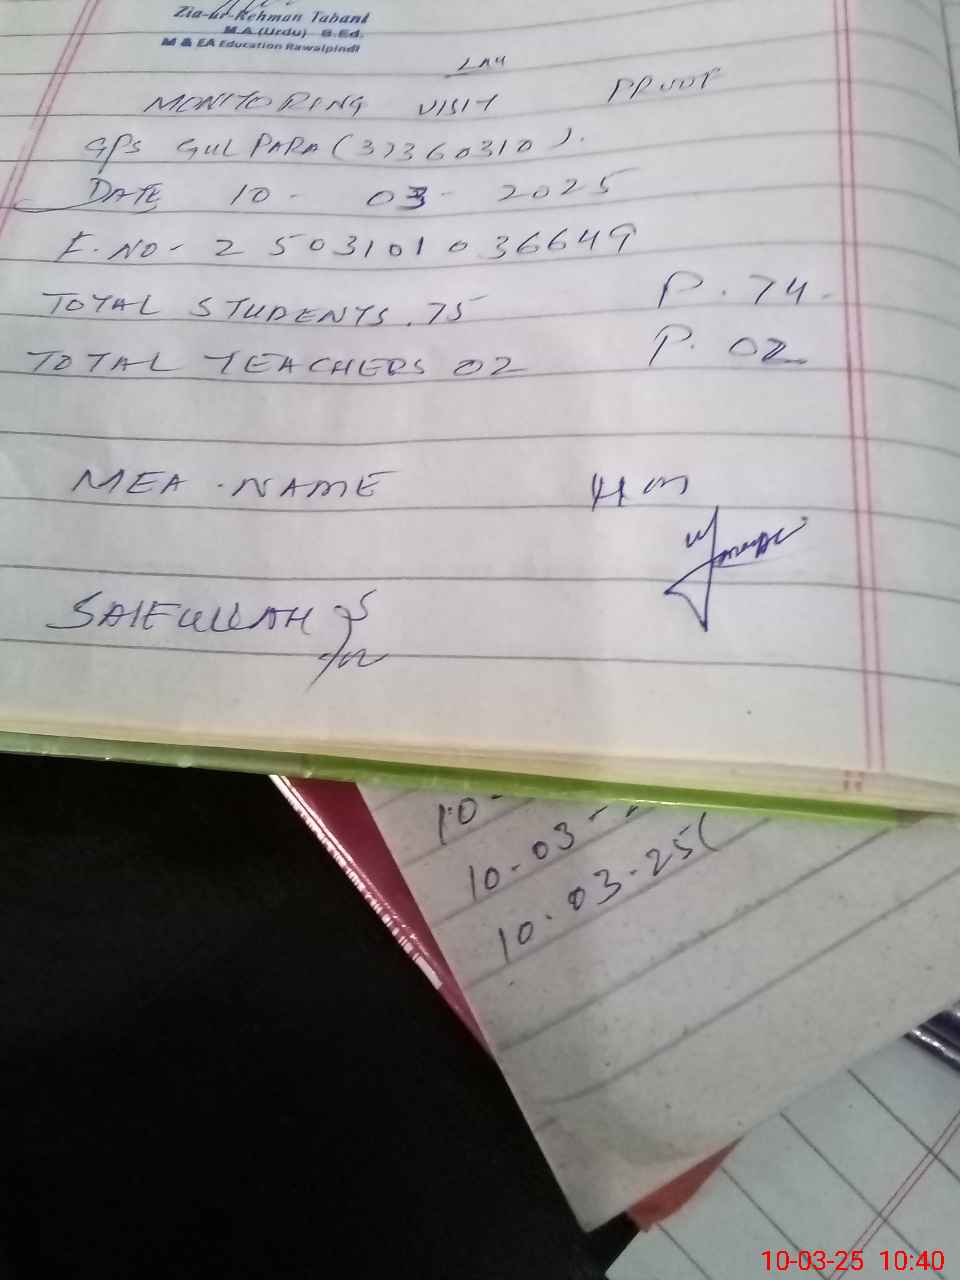 Zia-ur-Rehman Tabani
M.A (Urdu) B.Ed.
M & EA Education Rawalpindi
MONITORING VISIT PROOF
GPS GUL PARA (37360310).
DATE 10-03-2025
E.NO- 2503101036649
TOTAL STUDENTS.75 P.74
TOTAL TEACHERS 02 P.02
MEA.NAME HM
SAIFULLAH
10-
10-03-
10.03-25(
10-03-25 10:40